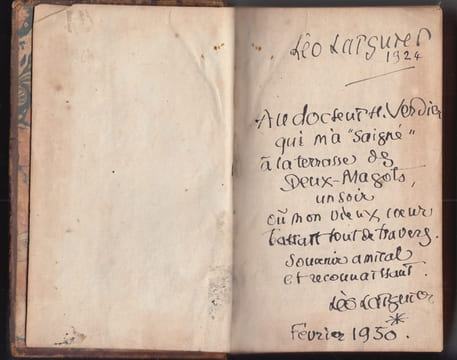 Léo Larguier
1924
Au docteur H. Verdier
qui m'a "saigné"
à la terrasse des
Deux-Magots,
un soir
où mon vieux cœur
battait tout de travers.
Souvenir amical
et reconnaissant.
Léo Larguier
Février 1930.